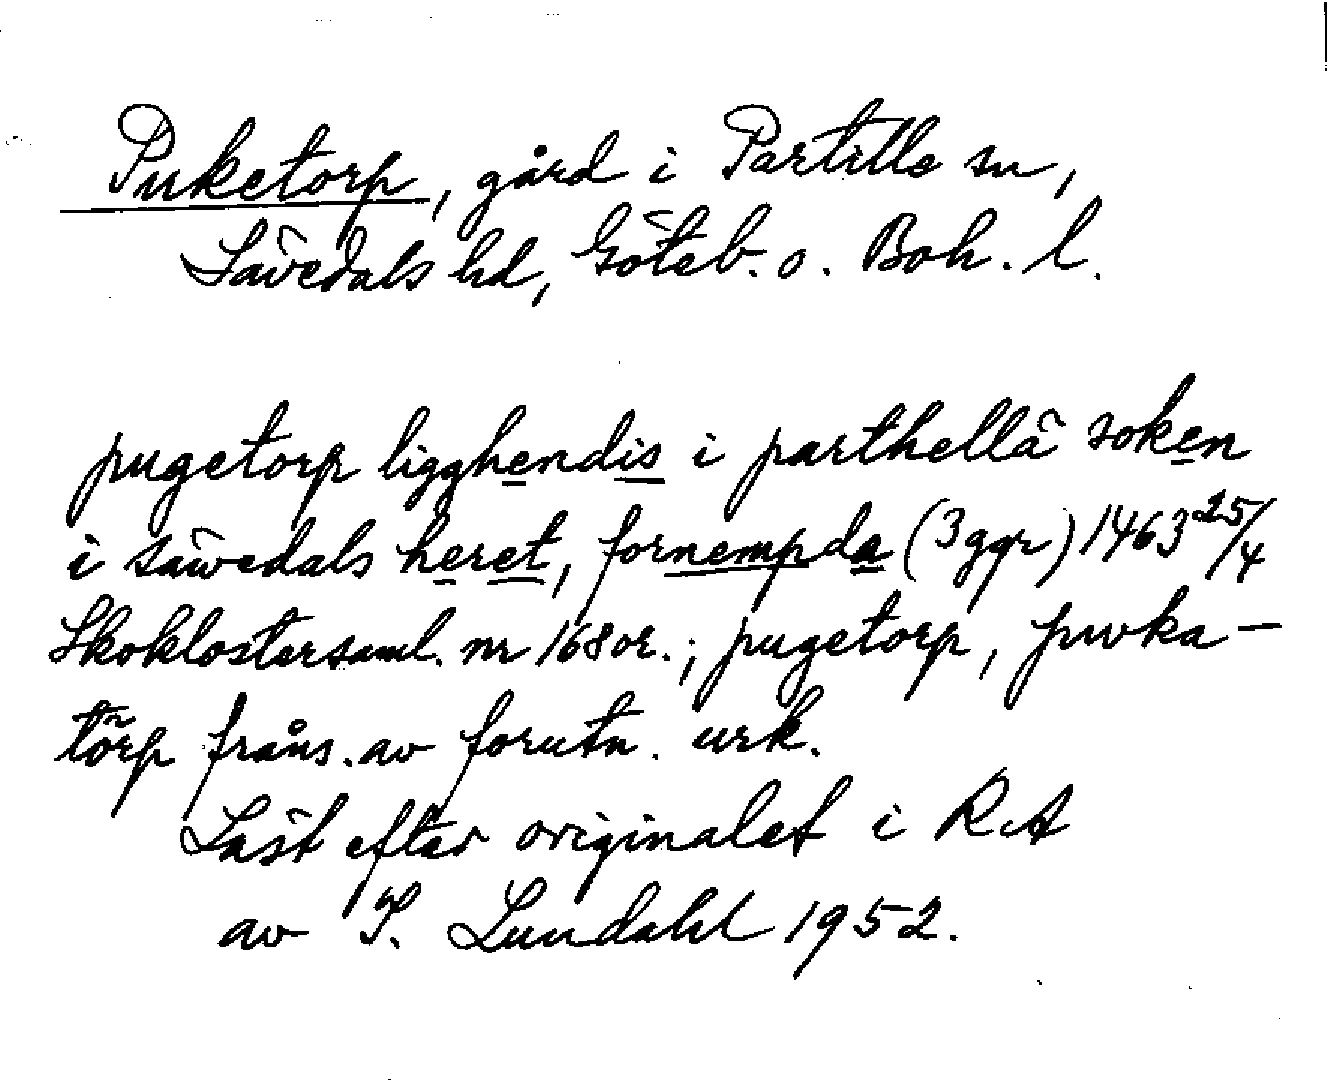 Puketorp, gård i Partille sn,
Sävedals hd, Göteb. o. Boh. l.
pugetorp ligghendis i parthellä soken
i säwedals heret, fornempda (3 ggr) 1463 25/4
Skoklostersaml. nr 168 or.; pugetorp, pwka-
törp frans. av forutn. urk.
Läst efter originalet i RA
av I. Lundahl 1952.